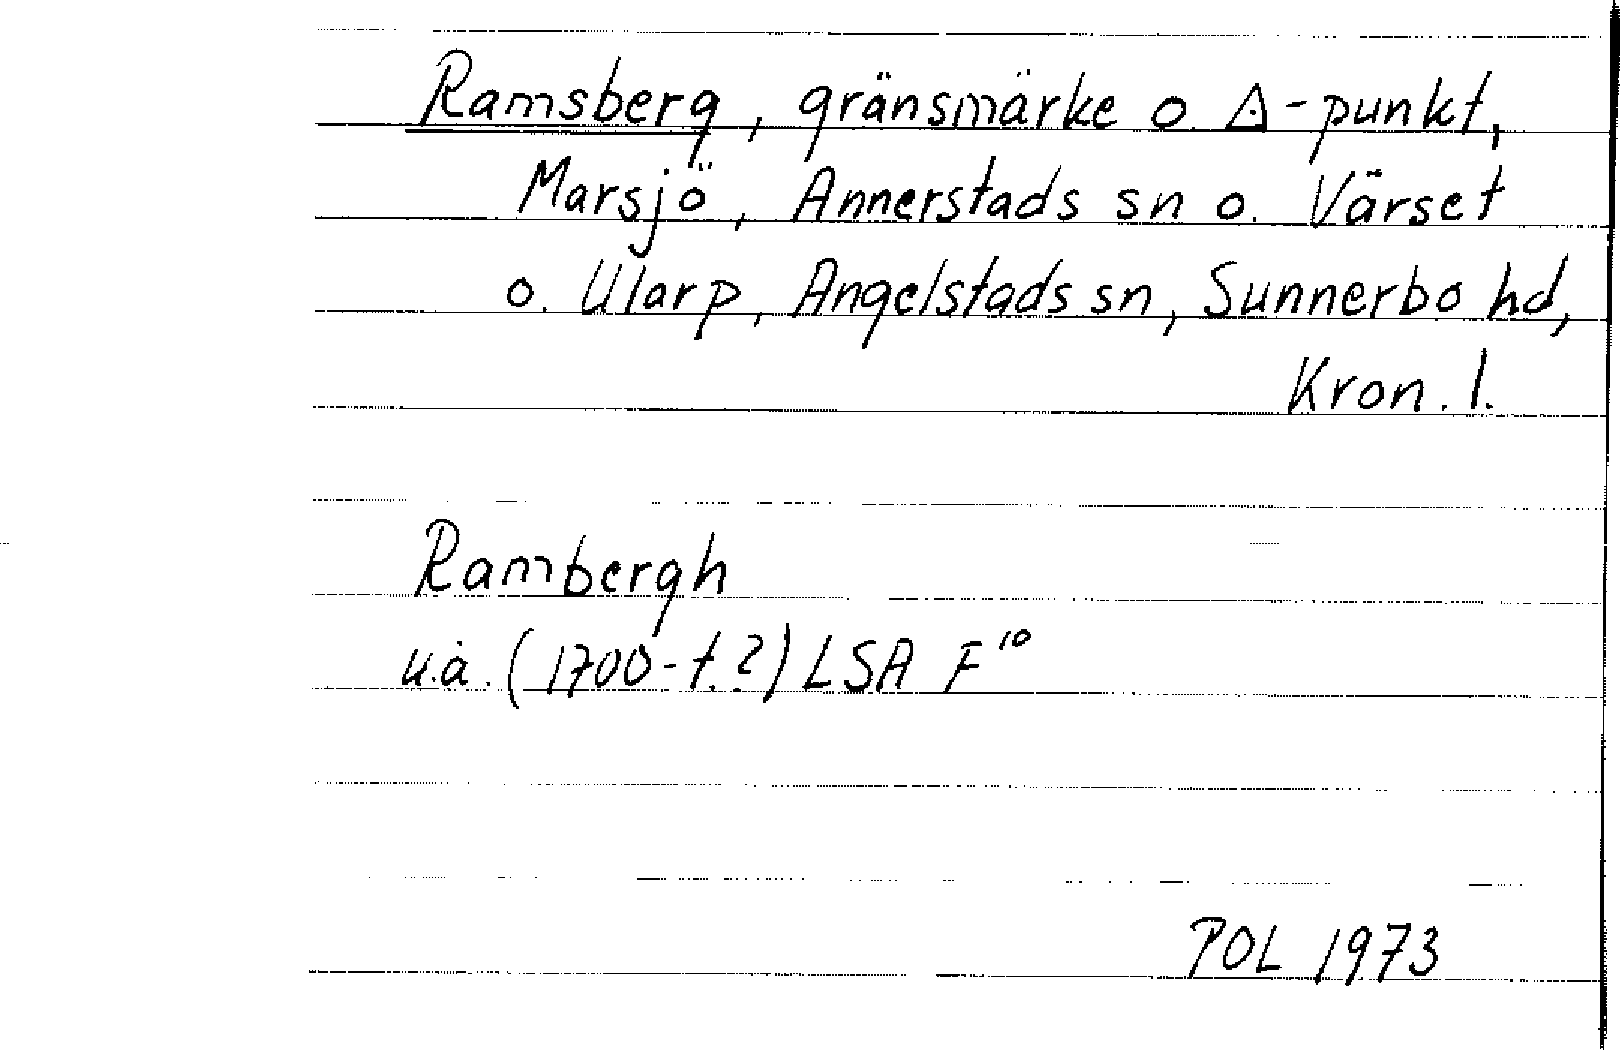 Ramsberg, gränsmärke o △-punkt,
Marsjö, Annerstads sn o. Värset
o. Ularp, Angelstads sn, Sunnerbo hd,
Kron. l.
Rambergh
u.å. (1700-t.?) LSA F¹⁰
POL 1973